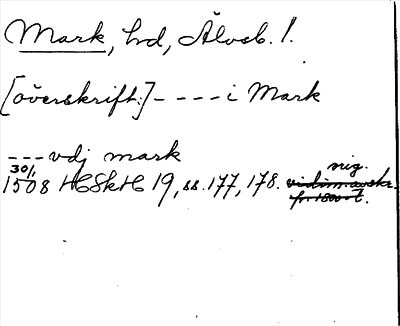 Mark, hd, Älvsb. l.
[överskrift:] - - - - i Mark
- - - vdj mark
30/1 orig.
1508 HSkH 19, ss. 177, 178. vidim. avskr.
fr. 1800-t.